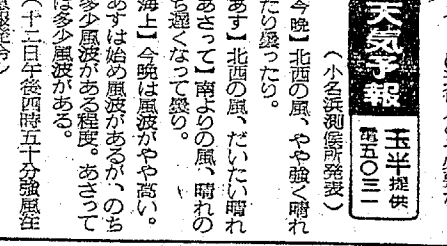 天気予報
玉半提供
電五〇三一
(小名浜測候所発表)
今晩】北西の風、やや強く晴れ
たり曇ったり。
あす】北西の風、だいたい晴れ
あさって】南よりの風、晴れの
ち遅くなって曇り。
海上】今晩は風波がやや高い。
あすは始め風波があるが、のち
多少風波がある程度。あさって
は多少風波がある。
(十二日午後四時五十分強風注